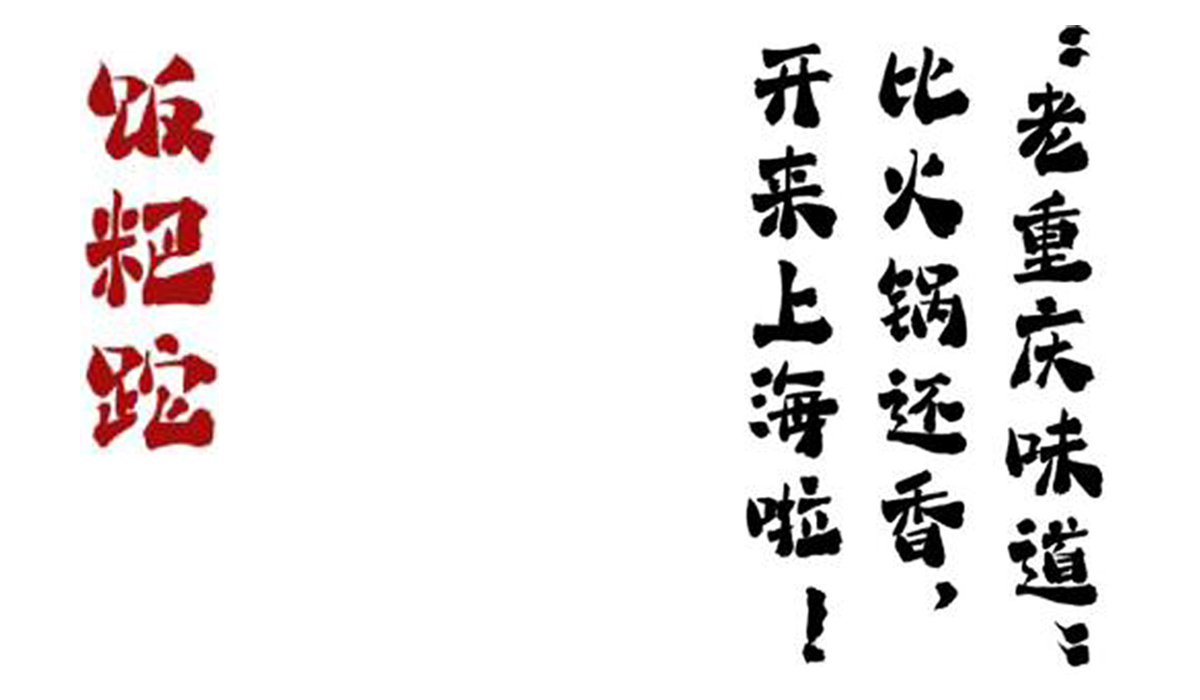 “老重庆味道”
比火锅还香，
开来上海啦！
饭粑跎